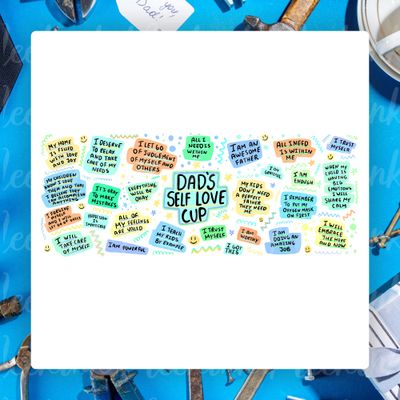 you,
Dad!
MY HOME
IS FILLED
WITH LOVE
AND JOY
I DESERVE
TO RELAX
AND TAKE
CARE OF MY
NEEDS
I LET GO
OF JUDGEMENT
OF MYSELF AND
OTHERS
ALL I
NEED IS
WITHIN
ME
I AM AN
AWESOME
FATHER
ALL I NEED
IS WITHIN
ME
I TRUST
MYSELF
MY CHILDREN
KNOW I LOVE
THEM AND THEY
IT'S OKAY
TO MAKE
MISTAKES
EVERYTHING
WILL BE
OKAY
DAD'S
SELF LOVE
CUP
MY KIDS
DON'T NEED
A PERFECT
FATHER
THEY NEED
ME
I AM
ENOUGH
WHEN MY
CHILD IS
HAVING
BIG
EMOTIONS
I WILL
SHARE MY
CALM
I REMEMBER
TO PUT MY
OXYGEN MASK
ON FIRST
PERFECTION IS
IMPOSSIBLE
ALL OF MY
FEELINGS
ARE VALID
I WILL
TAKE CARE OF
MYSELF
I AM POWERFUL
I TEACH
MY KIDS
BY EXAMPLE
I TRUST
MYSELF
I GOT
THIS
I AM
WORTHY
I AM
DOING AN
AMAZING
JOB
I WILL
EMBRACE
THE HERE
AND NOW